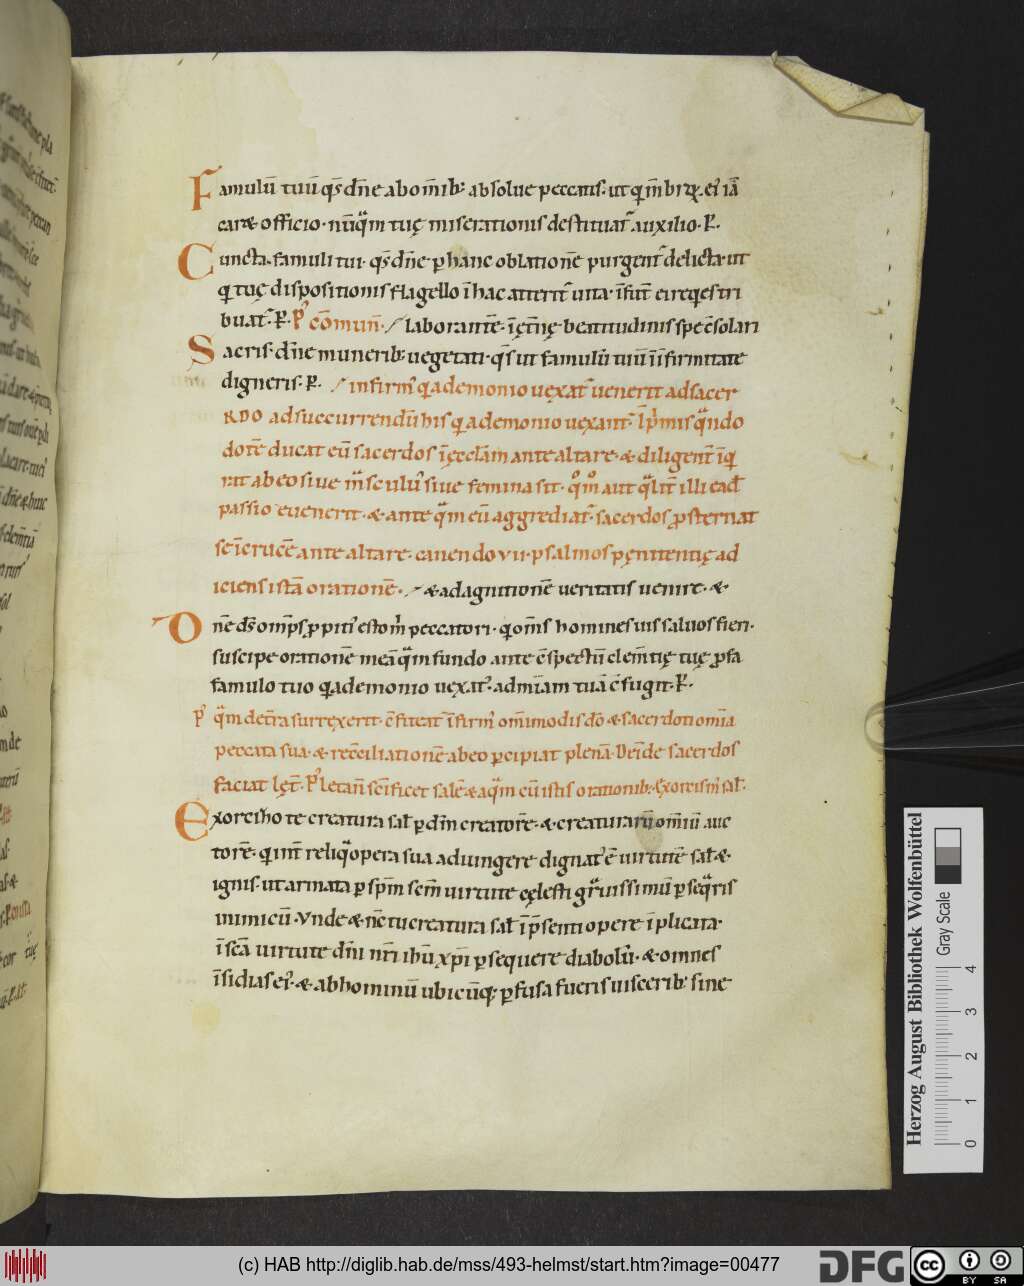 Famulū tuū qs dn̄e ab om̄ib; absolue peccatis. ut q̄ mēbroꝝ ei iā
carœ officio. nūqͣm tuę miserationis destituat auxilio. P.
Cuncta famuli tui. qs dn̄e ꝑ hanc oblationē purgent delicta. ut
qͥ tuę dispositionis flagello ī hac atterit uita. ī fut ei req̄es tri
buat. P. P comun̄. laborantē. ī ęt̄nę beatitudinis spe c̄solari
Sacris dn̄e munerib; uegetati. qs ut famulū tuū ī infirmitate
digneris. P. infirm q ademonio uexat uenerit ad sacer
RDO ad succurrendū his qͥ ademonio uexant. Īpͥmis qͣndo
dotē ducat eū sacerdos ī ęcclām ante altare. & diligent īqͥ
rat ab eo siue masculus siue femina sit. qͦm aut qͣlit illi ead
passio euenerit. & ante qͣm eū aggrediat. sacerdos ꝓsternat
se ī crucē ante altare. canendo VII. psalmos pęnitentię ad
iciens istā orationē. & ad agnitionē ueritatis uenire. &
Dn̄e ds omps ꝓpiti esto m̄ peccatori. qͥ om̄s homines uis saluos fieri.
suscipe orationē meā qͣm fundo ante c̄spectū clem̄tię tuę ꝓ fa
famulo tuo q ademonio uexat. ad mīam tuā c̄fugit. P.
P qͣm de t̄ra surrexerit. c̄fiteat infirm omimodis do & sacerdoti om̄ia
peccata sua. & rec̄ciliationē ab eo ꝑcipiat plenā. Deīde sacerdos
faciat lęt. P letan̄ sc̄ificet salē & aqͣm cū istis orationib; Exorcism sal.
Exorcizo te creatura sal ꝑ dm̄ creatorē. & creaturarū om̄iū auc
torē. qͥ int reliqͣ opera sua adiungere dignat ē uirtutē sal &
ignis. ut armata ꝑ spm̄ scm̄ uirtute cęlesti grauissimū ꝑseqͣris
inimicū. Vnde & n̄c tu creatura sal ī p̄senti opere īplicata.
ī scā uirtute dn̄i n̄ri ihū xp̄i ꝑsequere diabolū. & omnes
īsidias ei. & ab hominū ubicūq; ꝑfusa fueris uiscerib; sine
(c) HAB http://diglib.hab.de/mss/493-helmst/start.htm?image=00477
Herzog August Bibliothek Wolfenbüttel
Gray Scale
0 1 2 3 4
DFG
cc BY SA